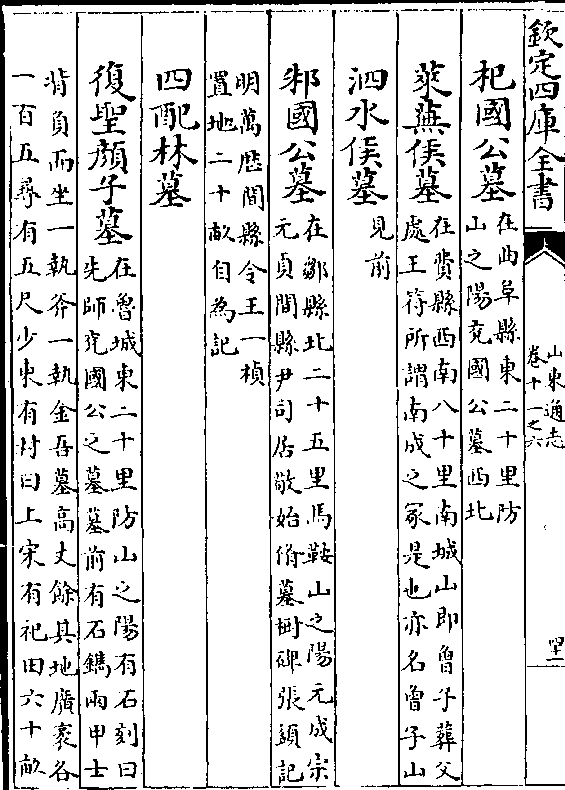 欽定四庫全書
山東通志
卷十一之六
四十一
杞國公墓
在曲阜縣東二十里防
山之陽兗國公墓西北
萊蕪侯墓
在費縣西南八十里南城山即曾子葬父
處王符所謂南成之冢是也亦名曾子山
泗水侯墓
見前
邾國公墓
在鄒縣北二十五里馬鞍山之陽元成宗
元貞間縣尹司居敬始脩墓樹碑張䪴記
明萬厯間縣令王一楨
置地二十畝自為記
四配林墓
復聖顔子墓
在魯城東二十里防山之陽有石刻曰
先師兗國公之墓墓前有石鐫兩甲士
背負而坐一執斧一執金吾墓高丈餘其地廣袤各
一百五尋有五尺少東有村曰上宋有祀田六十畝